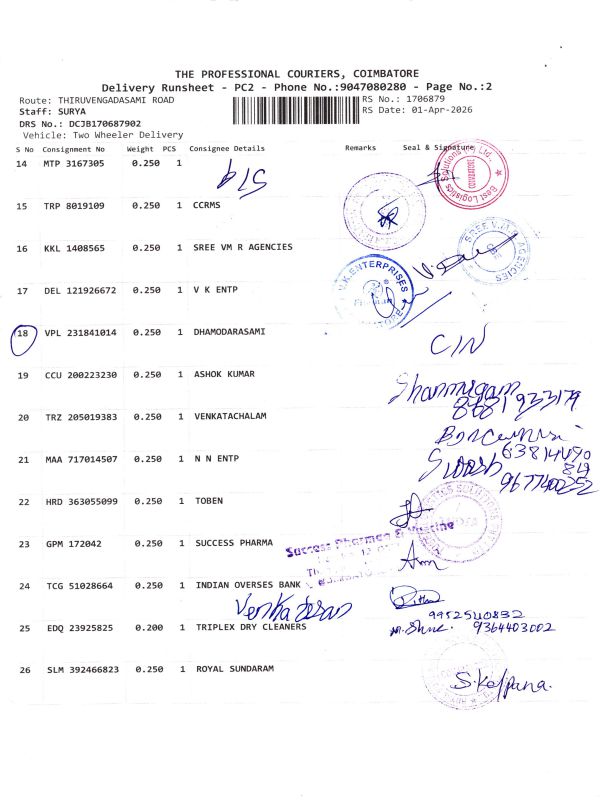 THE PROFESSIONAL COURIERS, COIMBATORE
Delivery Runsheet - PC2 - Phone No.:9047080280 - Page No.:2
Route: THIRUVENGADASAMI ROAD
RS No.: 1706879
Staff: SURYA
RS Date: 01-Apr-2026
DRS No.: DCJB170687902
Vehicle: Two Wheeler Delivery
S No Consignment No Weight PCS Consignee Details Remarks Seal & Signature
14 MTP 3167305 0.250 1
Best Logistics Solutions (P) Ltd.
COIMBATORE
15 TRP 8019109 0.250 1 CCRMS
16 KKL 1408565 0.250 1 SREE VM R AGENCIES
SREE V.M.R. AGENCIES
CBE
17 DEL 121926672 0.250 1 V K ENTP
V.K.ENTERPRISES
18 VPL 231841014 0.250 1 DHAMODARASAMI
C/N
19 CCU 200223230 0.250 1 ASHOK KUMAR
Shanmugam
8681933179
20 TRZ 205019383 0.250 1 VENKATACHALAM
21 MAA 717014507 0.250 1 N N ENTP
967740252
22 HRD 363055099 0.250 1 TOBEN
23 GPM 172042 0.250 1 SUCCESS PHARMA
Success Pharma
24 TCG 51028664 0.250 1 INDIAN OVERSES BANK
9952540832
25 EDQ 23925825 0.200 1 TRIPLEX DRY CLEANERS
9364403002
26 SLM 392466823 0.250 1 ROYAL SUNDARAM
S. Kalpana.